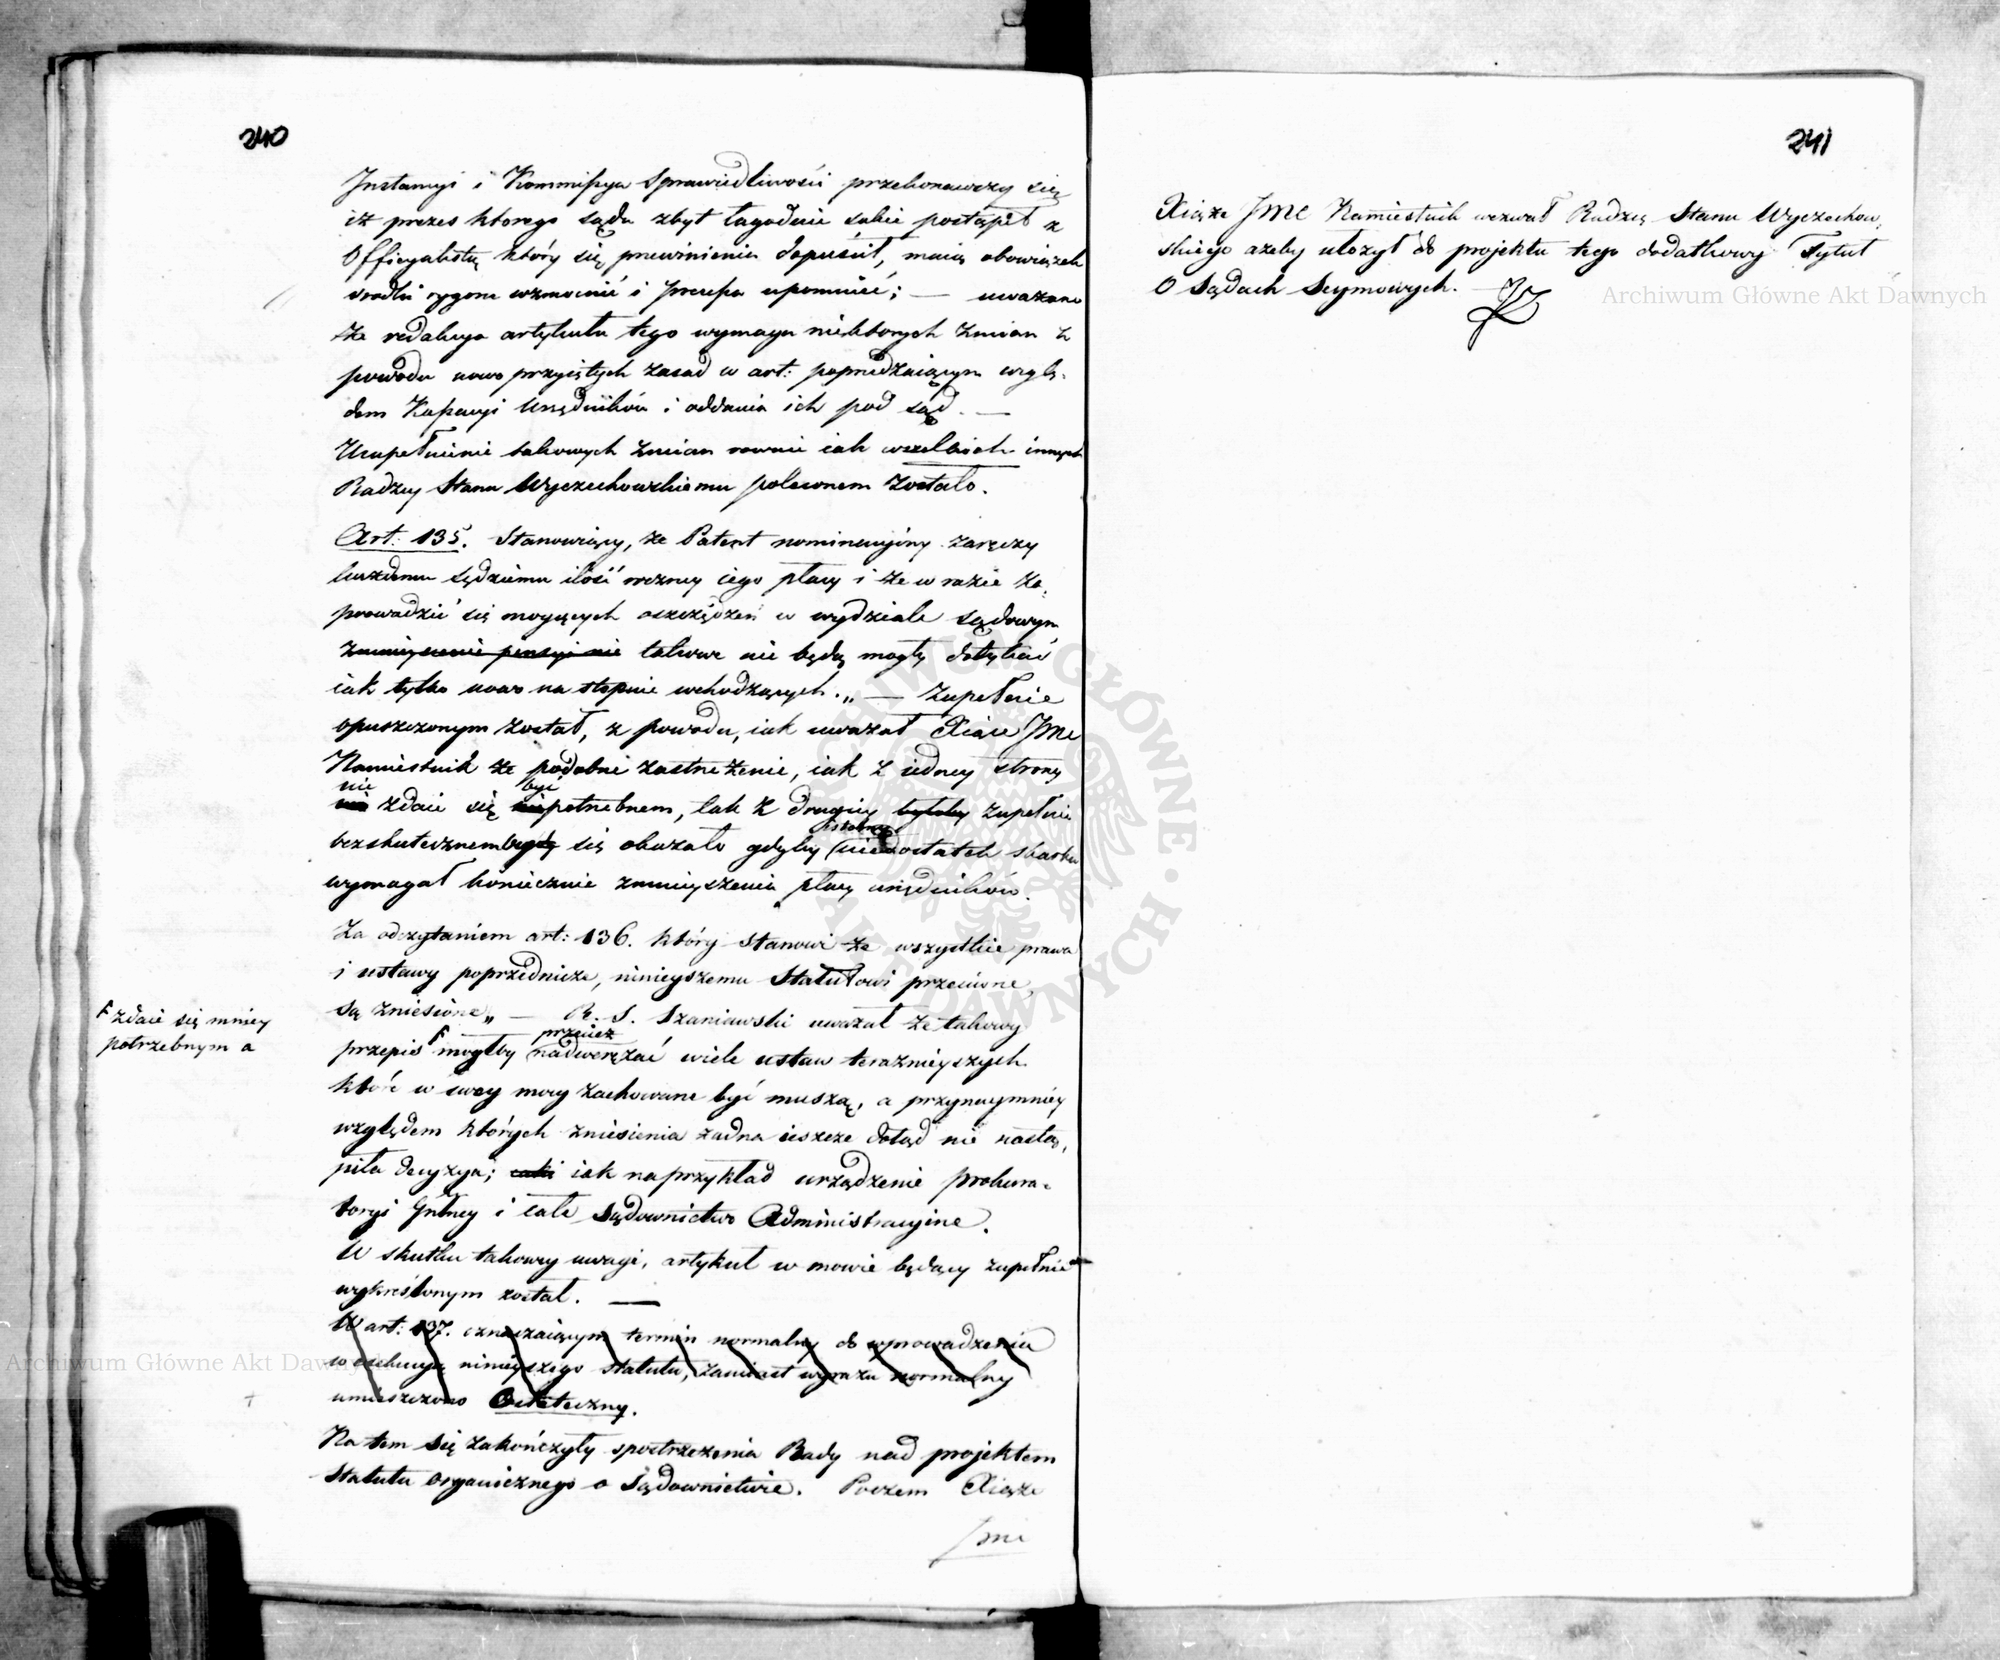 240
Instancyi i Kommissya Sprawiedliwości przekonawszy się
iż prezes ktorego sądu zbyt łagodnie sobie postąpił z
Officyalistą który się przewinienia dopuścił, maią obowiązek
srodki rygoru wzmocnić i prezesa upomnieć; — uważano
że redakcya artykułu tego wymaga niektorych zmian z
powodu nowo przyiętych zasad w art: poprzedzaiącym wzglę-
dem Kassacyi Urzędników i oddania ich pod sąd. —
Uzupełnienie takowych zmian rownie iak wszelkich innych
Radzcy Stanu Wyczechowskiemu poleconem zostało.
Art: 135. Stanowiący, że Patent nominacyiny zaręczy
każdemu sędziemu ilość roczney iego płacy i że w razie za-
prowadzić się mogących oszczędzeń w wydziale sądowym
zmnieyszenie pensyi nie takowe nie będą mogły dotykać
iak tylko nowo na stopnie wchodzących." — zupełnie
opuszczonym został, z powodu, iak uważał Xiąże JMC
Namiestnik że podobne zastrzeżenie, iak z iedney strony
nie być
zdaie się potrzebnem, tak z drugiey byłoby zupełnie
istotny
bezskutecznem się okazało gdyby niedostatek skarbu
wymagał koniecznie zmnieyszenia płacy urzędników.
Za odczytaniem art: 136. który stanowi że wszystkie prawa
i ustawy poprzednicze, ninieyszemu Statutowi przeciwne,
są zniesione" — R. S. Szaniawski uważał że takowy
przecież
przepis F mógłby nadwerężać wiele ustaw teraznieyszych
F zdaie się mniey
potrzebnym a
któr w swey mocy zachowane być muszą, a przynaymniey
względem których zniesienia żadna ieszcze dotąd nie nastą-
piła decyzya; iak naprzykład urządzenie prokura-
toryi Głney i całe Sądownictwo Administracyine.
W skutku takowey uwagi, artykuł w mowie będący zupełnie
wykreślonym został. —
W art: 137. oznaczaiącym termin normalny do wprowadzenia
w exekucyą ninieyszego statutu, zamiast wyrazu normalny
umieszczono Ostateczny.
Na tem się zakończyły spostrzeżenia Rady nad projektem
Statutu organicznego o Sądownictwie. Poczem Xiąże
JMC
241
Xiąże JMC Namiestnik wezwał Radzcę Stanu Wyczechow-
skiego ażeby ułożył do projektu tego dodatkowy Tytuł
O Sądach Seymowych. —
Archiwum Główne Akt Dawnych
Archiwum Główne Akt Dawnych
ARCHIWUM GŁÓWNE AKT DAWNYCH